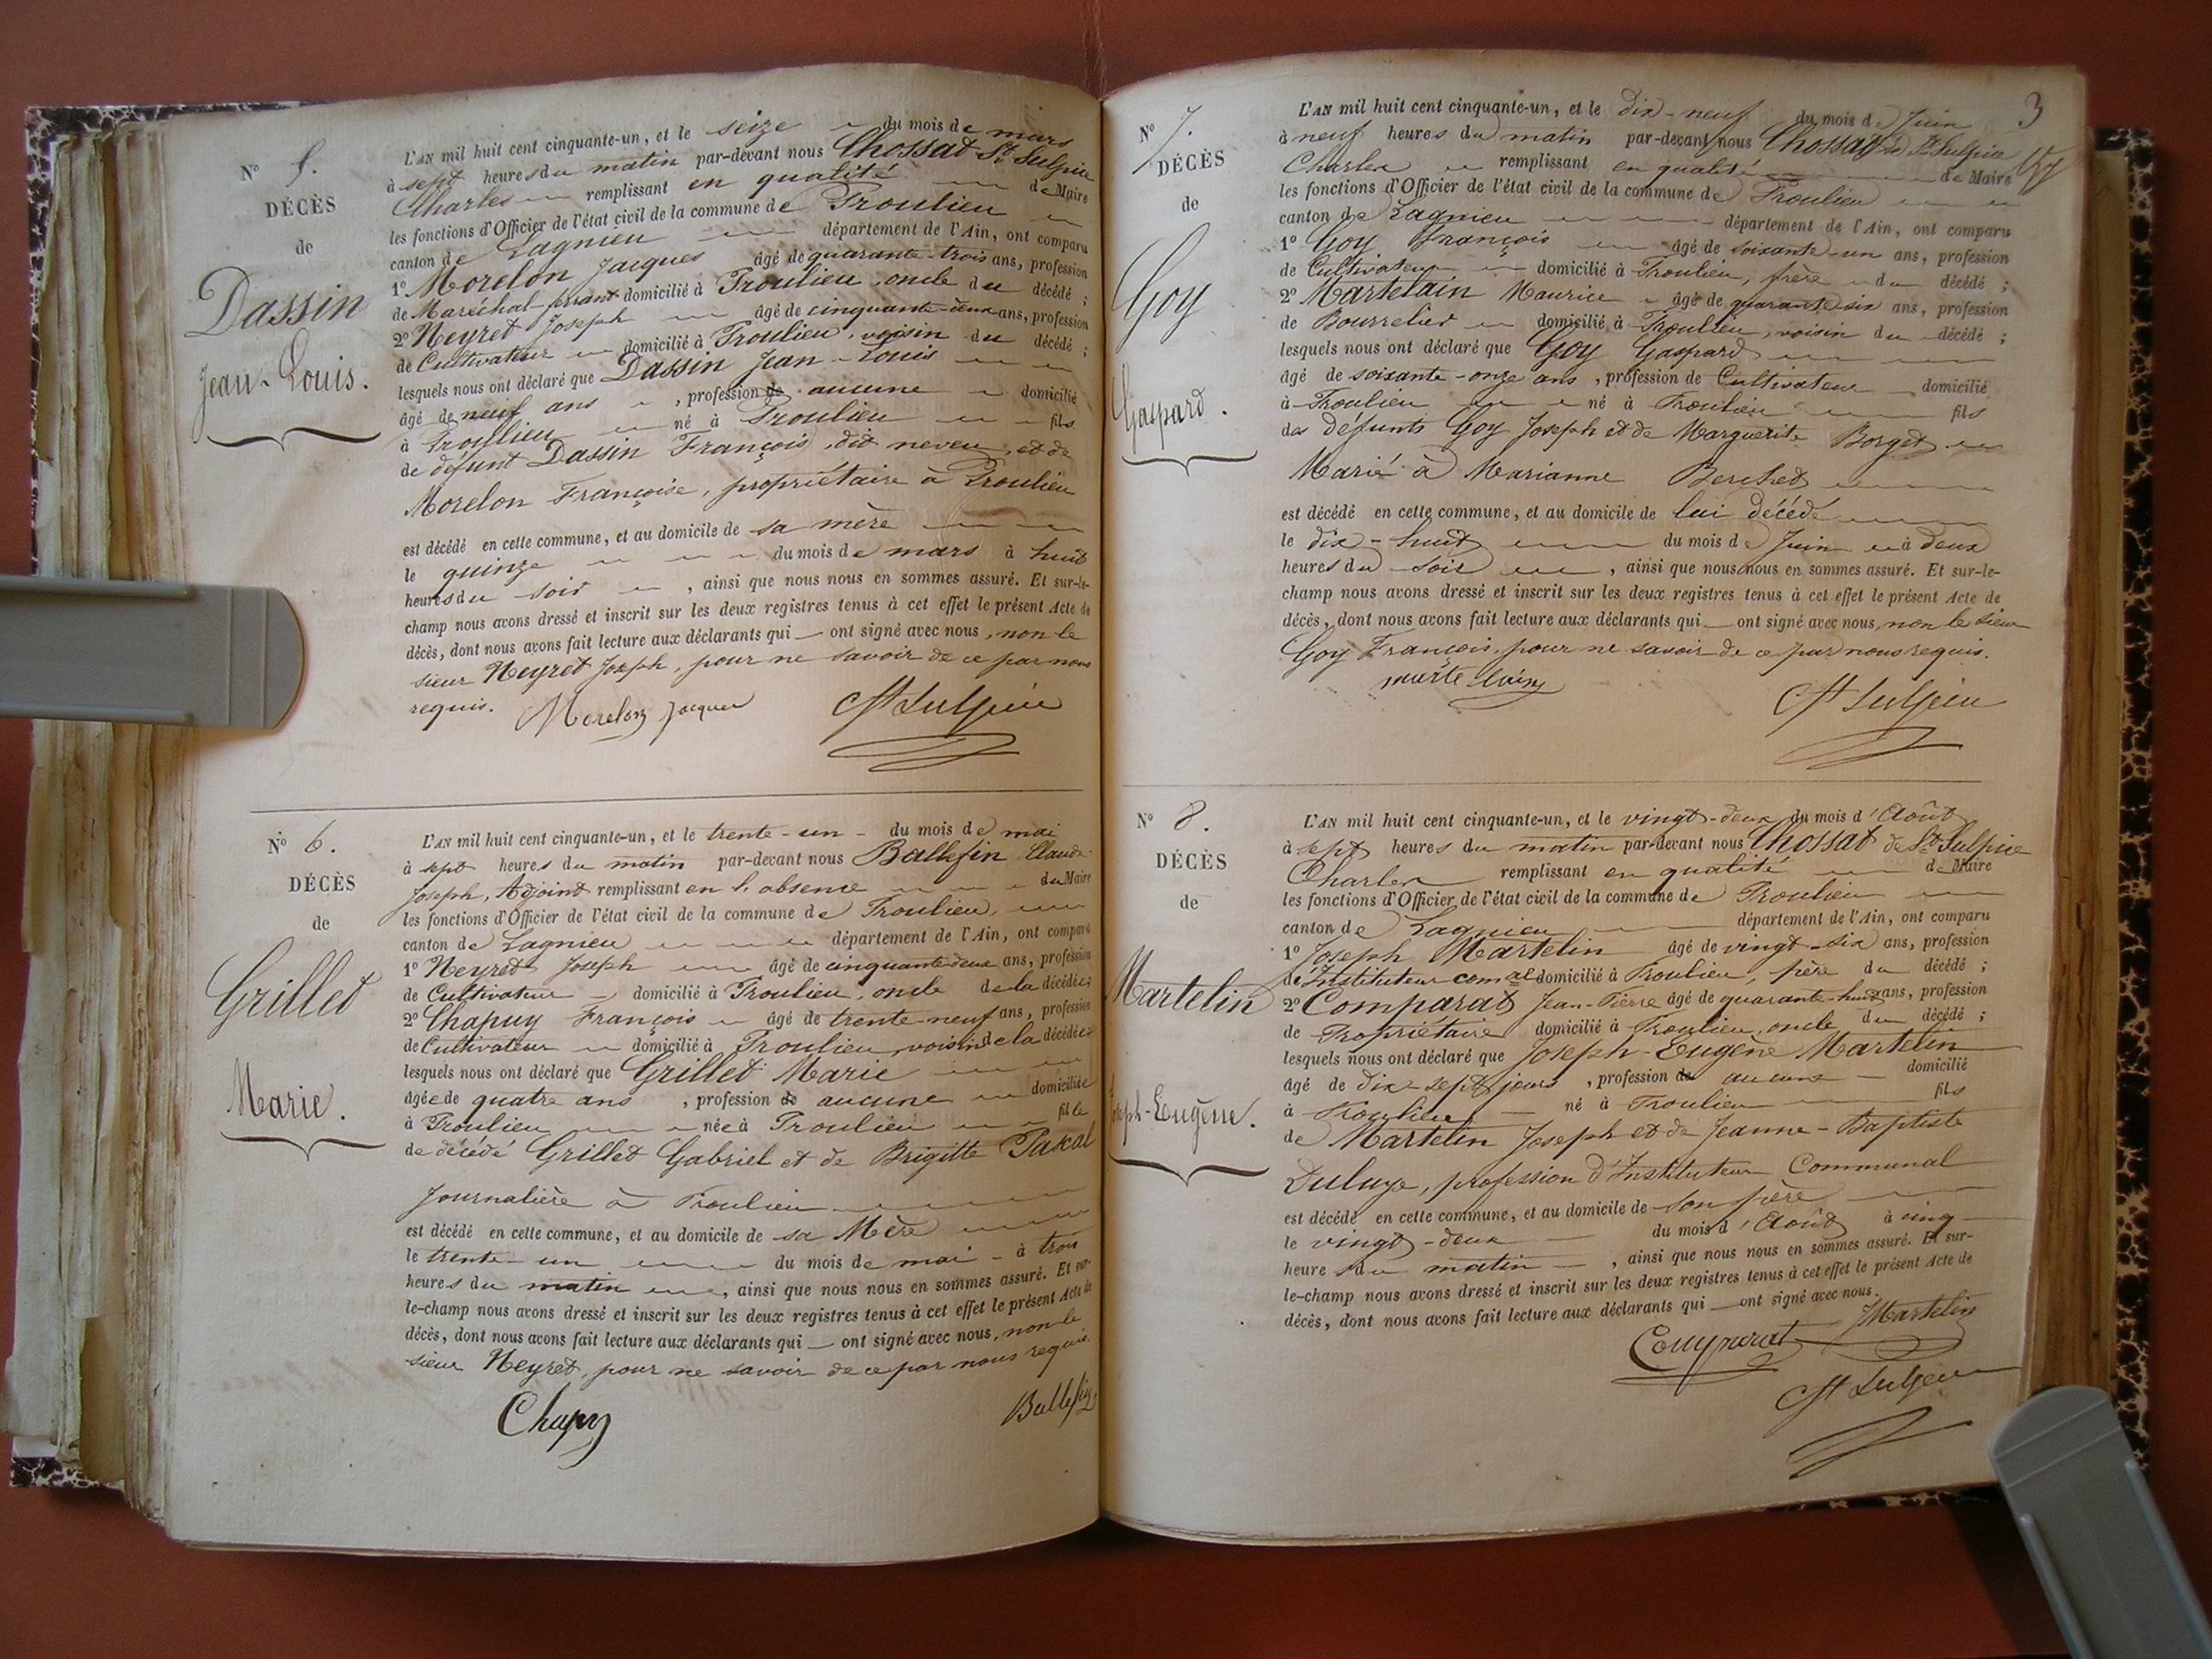 N° 5.
DÉCÈS
de
Dassin
Jean-Louis.
L'AN mil huit cent cinquante-un, et le seize du mois de mars
à sept heures du matin par-devant nous Chossat St. Sulpice
Charles remplissant en qualité de Maire
les fonctions d'Officier de l'état civil de la commune de Proulieu
canton de Lagnieu département de l'Ain, ont comparu
1° Morelon Jacques âgé de quarante-trois ans, profession
de Maréchal-ferrant domicilié à Proulieu, oncle du décédé ;
2° Neyret Joseph âgé de cinquante-deux ans, profession
de Cultivateur domicilié à Proulieu, voisin du décédé ;
lesquels nous ont déclaré que Dassin Jean-Louis
âgé de neuf ans, profession de aucune domicilié
à Proulieu né à Proulieu fils
de défunt Dassin François, dit neveu, et de
Morelon Françoise, propriétaire à Proulieu
est décédé en cette commune, et au domicile de sa mère
le quinze du mois de mars à huit
heures du soir, ainsi que nous nous en sommes assuré. Et sur-le-
champ nous avons dressé et inscrit sur les deux registres tenus à cet effet le présent Acte de
décès, dont nous avons fait lecture aux déclarants qui — ont signé avec nous, non le
sieur Neyret Joseph, pour ne savoir de ce par nous
requis. Morelon Jacques St Sulpice
N° 6.
DÉCÈS
de
Grillet
Marie.
L'AN mil huit cent cinquante-un, et le trente-un du mois de mai
à sept heures du matin par-devant nous Ballefin Claude
Joseph, Adjoint remplissant en l'absence du Maire
les fonctions d'Officier de l'état civil de la commune de Proulieu,
canton de Lagnieu département de l'Ain, ont comparu
1° Neyret Joseph âgé de cinquante-deux ans, profession
de Cultivateur domicilié à Proulieu, oncle de la décédée ;
2° Chapuy François âgé de trente-neuf ans, profession
de Cultivateur domicilié à Proulieu, voisin de la décédée ;
lesquels nous ont déclaré que Grillet Marie
âgée de quatre ans, profession de aucune domiciliée
à Proulieu née à Proulieu fille
de décédé Grillet Gabriel et de Brigitte Pascal
Journalière à Proulieu
est décédé en cette commune, et au domicile de sa Mère
le trente-un du mois de mai à trois
heures du matin, ainsi que nous nous en sommes assuré. Et sur-
le-champ nous avons dressé et inscrit sur les deux registres tenus à cet effet le présent Acte de
décès, dont nous avons fait lecture aux déclarants qui — ont signé avec nous, non le
sieur Neyret, pour ne savoir de ce par nous requis.
Chapuy Ballefin
3
N° 7.
DÉCÈS
de
Goy
Gaspard.
L'AN mil huit cent cinquante-un, et le dix-neuf du mois de Juin
à neuf heures du matin par-devant nous Chossat de St Sulpice
Charles remplissant en qualité de Maire
les fonctions d'Officier de l'état civil de la commune de Proulieu
canton de Lagnieu département de l'Ain, ont comparu
1° Goy François âgé de soixante-un ans, profession
de Cultivateur domicilié à Proulieu, frère du décédé ;
2° Martelain Maurice âgé de quarante-six ans, profession
de Bourrelier domicilié à Proulieu, voisin du décédé ;
lesquels nous ont déclaré que Goy Gaspard
âgé de soixante-onze ans, profession de Cultivateur domicilié
à Proulieu né à Proulieu fils
des défunts Goy Joseph et de Marguerite Borget
Marié à Marianne Berchet
est décédé en cette commune, et au domicile de lui décédé
le dix-huit du mois de Juin à deux
heures du soir, ainsi que nous nous en sommes assuré. Et sur-le-
champ nous avons dressé et inscrit sur les deux registres tenus à cet effet le présent Acte de
décès, dont nous avons fait lecture aux déclarants qui — ont signé avec nous, non le sieur
Goy François, pour ne savoir de ce par nous requis.
St Sulpice
N° 8.
DÉCÈS
de
Martelin
Joseph-Eugène.
L'AN mil huit cent cinquante-un, et le vingt-deux du mois d'Août
à sept heures du matin par-devant nous Chossat de St Sulpice
Charles remplissant en qualité de Maire
les fonctions d'Officier de l'état civil de la commune de Proulieu
canton de Lagnieu département de l'Ain, ont comparu
1° Joseph Martelin âgé de vingt-six ans, profession
d'Instituteur comal domicilié à Proulieu, père du décédé ;
2° Comparat Jean-Pierre âgé de quarante-huit ans, profession
de Propriétaire domicilié à Proulieu, oncle du décédé ;
lesquels nous ont déclaré que Joseph-Eugène Martelin
âgé de dix-sept jours, profession de aucune domicilié
à Proulieu né à Proulieu fils
de Martelin Joseph et de Jeanne-Baptiste
profession d'Instituteur Communal
est décédé en cette commune, et au domicile de son père
le vingt-deux du mois d'Août à cinq
heures du matin, ainsi que nous nous en sommes assuré. Et sur-
le-champ nous avons dressé et inscrit sur les deux registres tenus à cet effet le présent Acte de
décès, dont nous avons fait lecture aux déclarants qui — ont signé avec nous.
Comparat JMartelin
St Sulpice